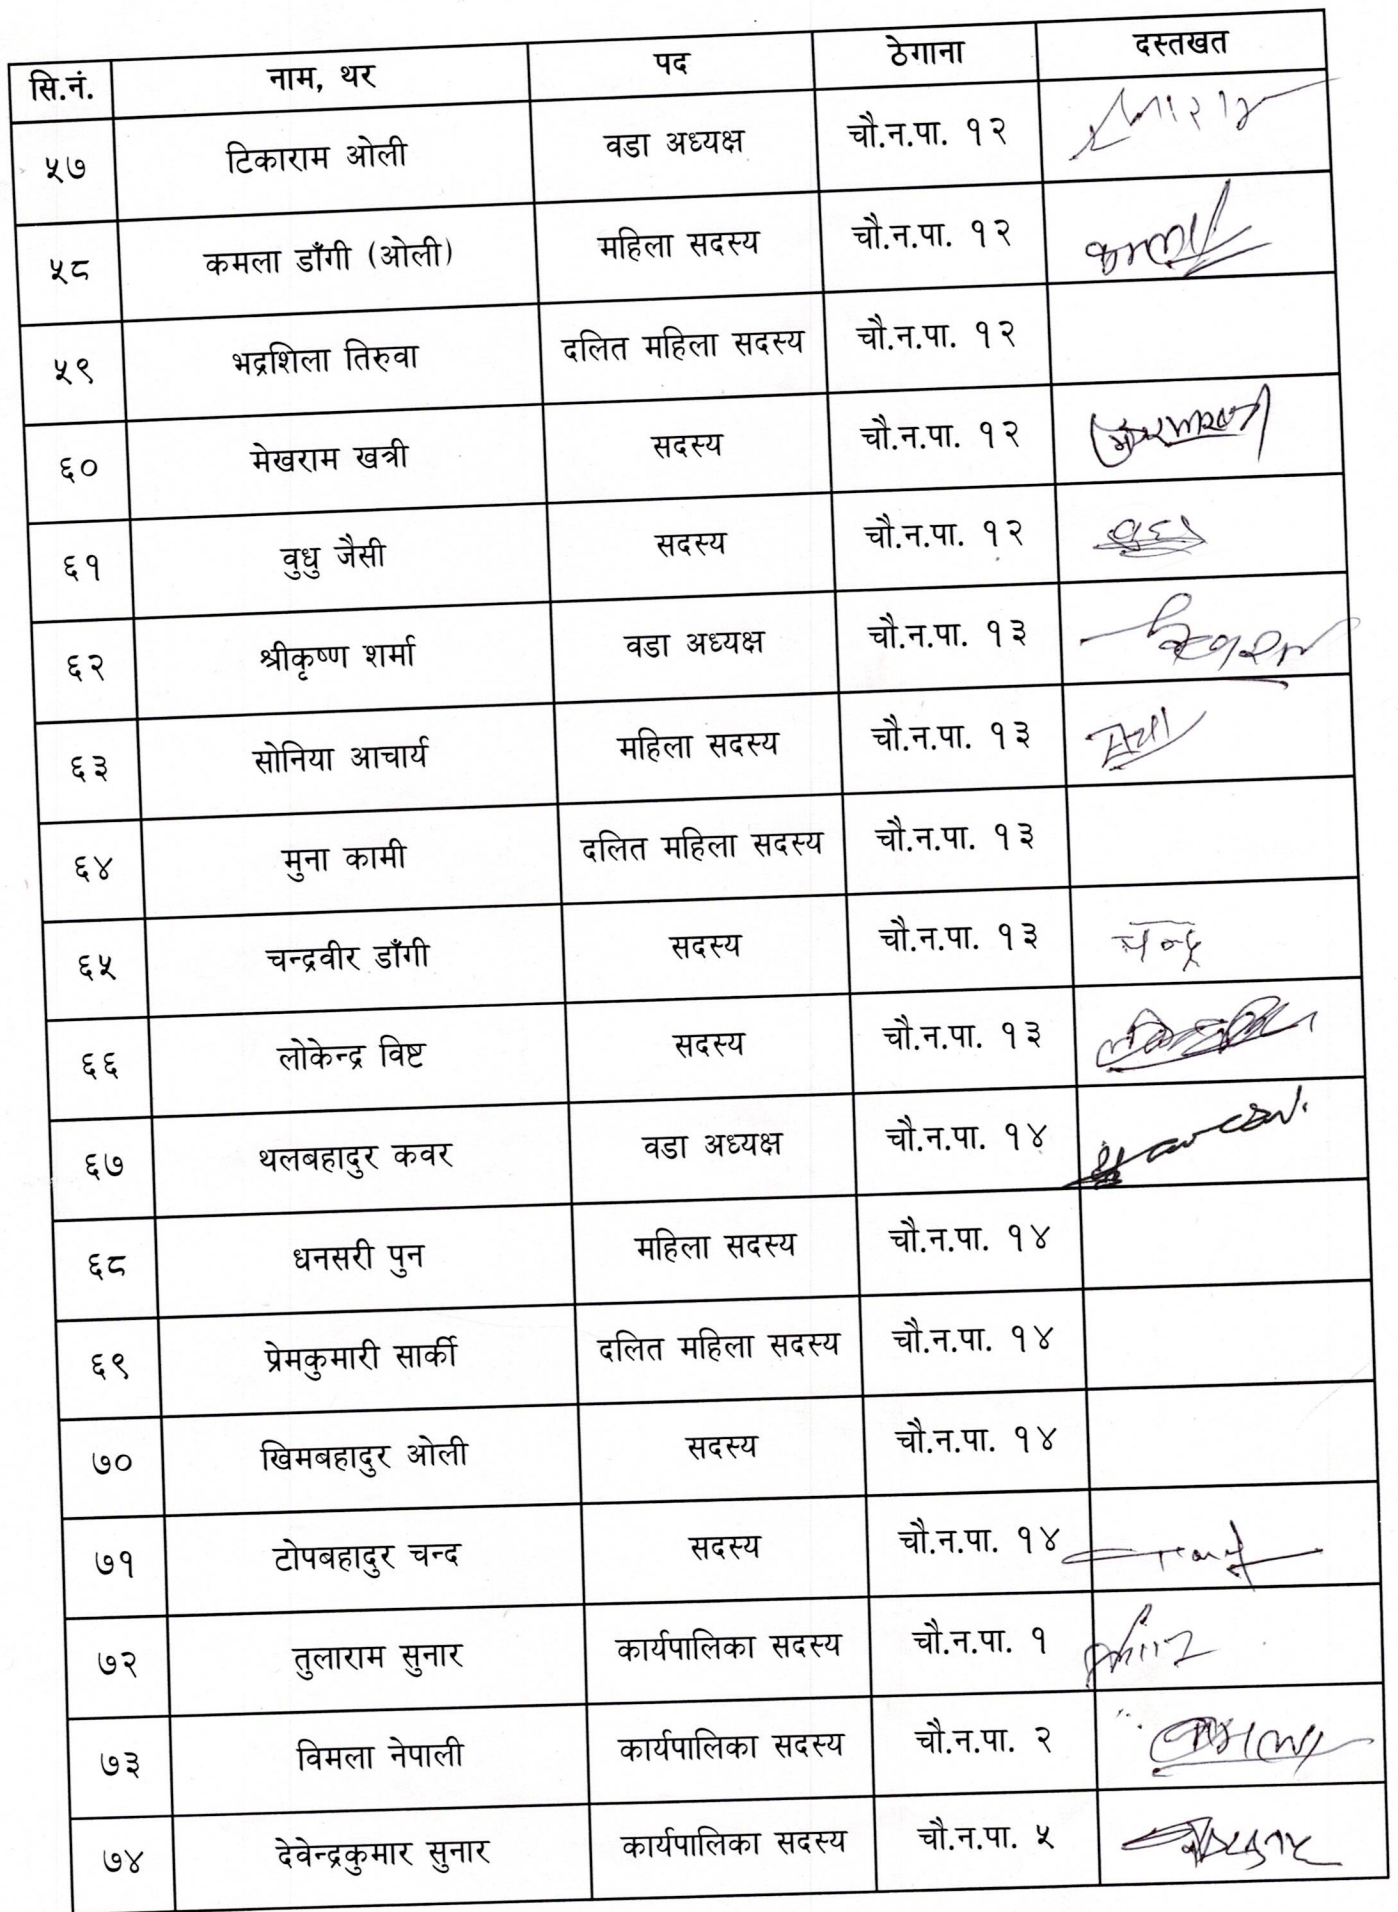 सि.नं. नाम, थर पद ठेगाना दस्तखत
५७ टिकाराम ओली वडा अध्यक्ष चौ.न.पा. १२
५८ कमला डाँगी (ओली) महिला सदस्य चौ.न.पा. १२ कमला
५९ भद्रशिला तिरुवा दलित महिला सदस्य चौ.न.पा. १२
६० मेखराम खत्री सदस्य चौ.न.पा. १२
६१ वुधु जैसी सदस्य चौ.न.पा. १२
६२ श्रीकृष्ण शर्मा वडा अध्यक्ष चौ.न.पा. १३
६३ सोनिया आचार्य महिला सदस्य चौ.न.पा. १३
६४ मुना कामी दलित महिला सदस्य चौ.न.पा. १३
६५ चन्द्रवीर डाँगी सदस्य चौ.न.पा. १३ चन्द्र
६६ लोकेन्द्र विष्ट सदस्य चौ.न.पा. १३
६७ थलबहादुर कवर वडा अध्यक्ष चौ.न.पा. १४
६८ धनसरी पुन महिला सदस्य चौ.न.पा. १४
६९ प्रेमकुमारी सार्की दलित महिला सदस्य चौ.न.पा. १४
७० खिमबहादुर ओली सदस्य चौ.न.पा. १४
७१ टोपबहादुर चन्द सदस्य चौ.न.पा. १४
७२ तुलाराम सुनार कार्यपालिका सदस्य चौ.न.पा. १
७३ विमला नेपाली कार्यपालिका सदस्य चौ.न.पा. २
७४ देवेन्द्रकुमार सुनार कार्यपालिका सदस्य चौ.न.पा. ५